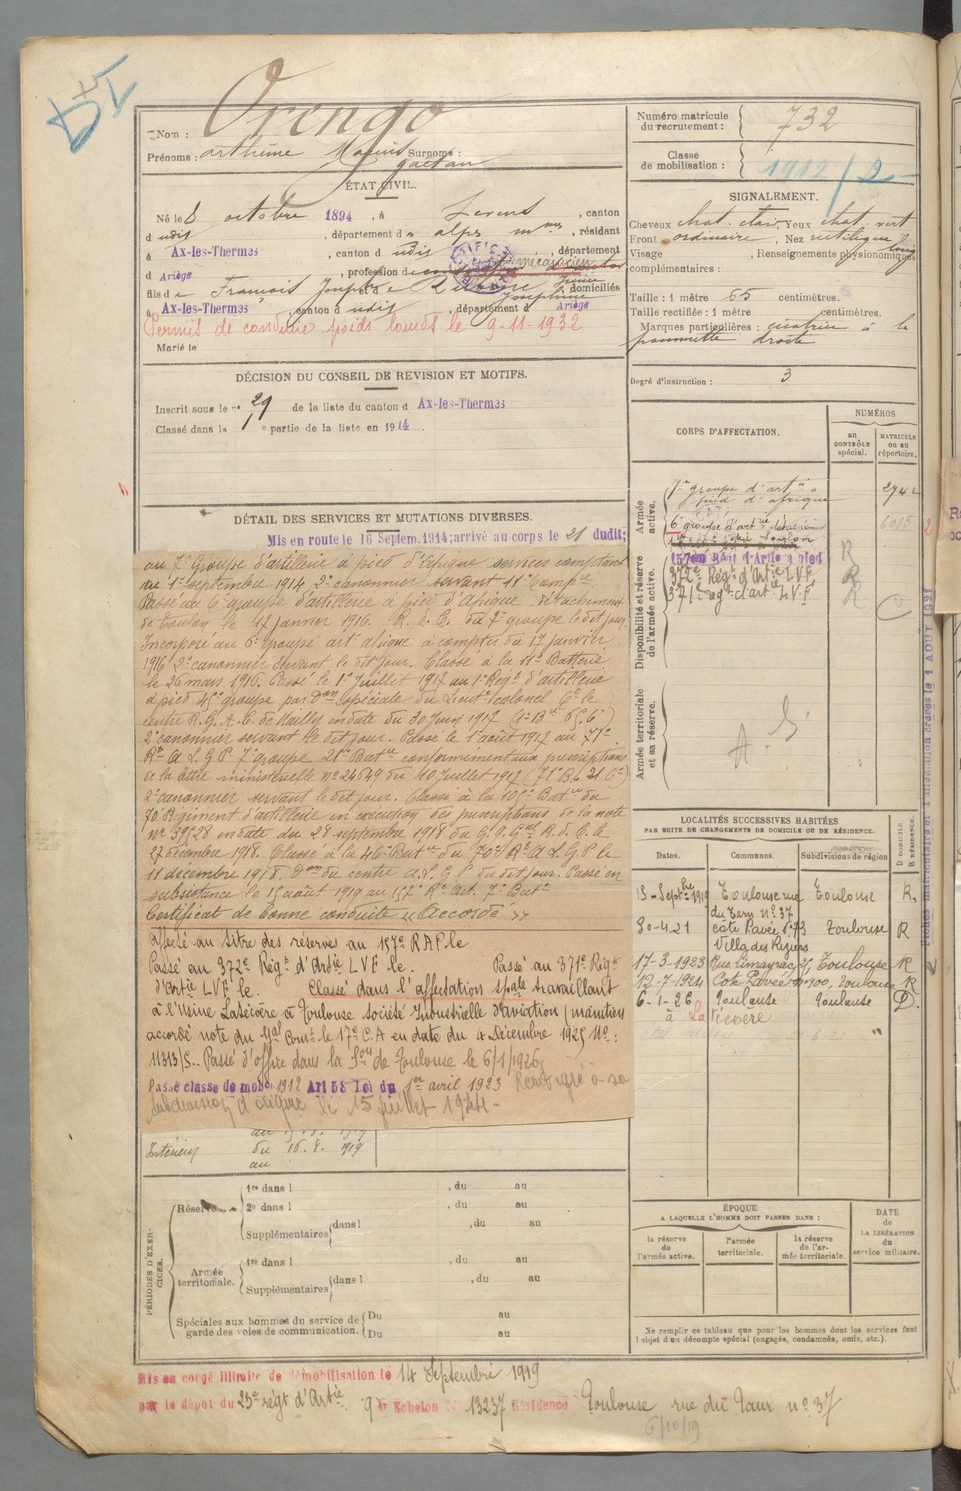 Orengo
Nom :
Prénoms : arthème Marius Surnoms :
gaëtan
ÉTAT CIVIL.
Né le 8 octobre 1894, à Levens, canton
dudit, département des alpes mmes, résidant
à Ax-les-Thermes, canton dudit, département
d Ariège, profession de mécanicien
fils de François Joseph et de domiciliés
Joséphine
à Ax-les-Thermes, canton dudit, département d Ariège
Permis de conduire poids lourds le 9-11-1932
Marié le
DÉCISION DU CONSEIL DE REVISION ET MOTIFS.
Inscrit sous le no 29 de la liste du canton d Ax-les-Thermes
Classé dans la 1e partie de la liste en 1914.
DÉTAIL DES SERVICES ET MUTATIONS DIVERSES.
Mis en route le 16 Septem. 1914; arrivé au corps le 21 dudit;
au 7e Groupe d'artillerie à pied d'Afrique services comptant
du 1er septembre 1914 2e canonnier servant 11e Comp
Passé au 6e groupe d'artillerie à pied d'Afrique, détachement
de Toulon le 17 janvier 1916. du 7e groupe le dit jour
Incorporé au 6e Groupe art afrique à compter du 17 janvier
1916 2e canonnier servant le dit jour. Classé à la 11e Batterie
le 26 mars 1916. Passé le 1er Juillet 1917 au 1er Régt d'artillerie
à pied groupe par Don spéciale du Lieut-colonel Ct le
centre R.G.A.L. de Mailly en date du 30 Juin 1917
2e canonnier servant le dit jour. Passé le 1er août 1917 au 71e
Rt A L G P 7e groupe 21e Batie conformément aux prescriptions
de la lettre ministérielle no 24649 du 10 Juillet 1917
2e canonnier servant le dit jour. Classé à la 105e Batie du
70e Régiment d'artillerie en exécution des prescriptions de la note
no 39528 en date du 28 septembre 1918 du G.Q.Gal
27 décembre 1918. Classé à la 46e Batie du 70e Rt A L G P le
11 décembre 1918. Don du centre A.L.G.P du dit jour. Passé en
subsistance le 15 août 1919 au 157e Rt Art. 7e Batie
Certificat de bonne conduite « Accordé »
affecté au titre des réserves au 157e RAP le
Passé au 372e Régt d'Artie LVF le. Passé au 371e Régt
d'Artie LVF le. Classé dans l'affectation spale travaillant
à l'Usine Latécoère à Toulouse société Industrielle d'aviation (maintien
accordé note du Gal Comt le 17e C.A en date du 4 Décembre 1925 No:
11313/S. Passé d'office dans la Son de Toulouse le 6/1/1926.
Passé classe de mobon 1912 Art 58 Loi du 1er avril 1923 Réintégré à sa
subdivision d'origine le 15 juillet 1944-
Intérieur du 16.8. 1919
au
PÉRIODES D'EXERCICES.
Réserve
1re dans l , du au
2e dans l , du au
Supplémentaires dans l , du au
Armée territoriale.
1re dans l , du au
Supplémentaires dans l , du au
Spéciales aux hommes du service de garde des voies de communication.
Du au
Du au
Mis en congé illimité de démobilisation le 14 Septembre 1919
par le dépôt du 23e régt d'Artie 9e Echelon No 13237 Résidence Toulouse rue du Taur no 37
6/10/19
Numéro matricule du recrutement : 732
Classe de mobilisation : 1912/2
SIGNALEMENT.
Cheveux chat. clair, Yeux chat. vert
Front ordinaire, Nez rectiligne
Visage long, Renseignements physionomiques
complémentaires :
Taille : 1 mètre 65 centimètres.
Taille rectifiée : 1 mètre centimètres.
Marques particulières : cicatrice à la
pommette droite
Degré d'instruction : 3
CORPS D'AFFECTATION.
NUMÉROS
au CONTRÔLE spécial.
MATRICULE ou au répertoire.
Armée active.
7e groupe d'artie à
pied d'afrique
2942
6e groupe d'artie
6015
Disponibilité et réserve de l'armée active.
157e Régt d'Artie à pied R
372e Régt d'Artie LVF R
371e régt d'art LVF R
Armée territoriale et sa réserve.
A. S.
LOCALITÉS SUCCESSIVES HABITÉES
PAR SUITE DE CHANGEMENTS DE DOMICILE OU DE RÉSIDENCE.
Dates. Communes. Subdivisions de région D DOMICILE R RÉSIDENCE.
13-Septbre 1919 Toulouse rue Toulouse R.
du Tarn no 37
30-4-21 côte Pavée no 73 Toulouse R
Villa des Rosiers
17-3-1923 Rue Limayrac 25, Toulouse R
12-7-1924 Cote Pavée no 100, Toulouse R
6-1-26 Toulouse Toulouse D.
à La técoère
ÉPOQUE
A LAQUELLE L'HOMME DOIT PASSER DANS :
la réserve de l'armée active.
l'armée territoriale.
la réserve de l'armée territoriale.
DATE de LA LIBÉRATION du service militaire.
Ne remplir ce tableau que pour les hommes dont les services font
l'objet d'un décompte spécial (engagés, condamnés, omis, etc.).